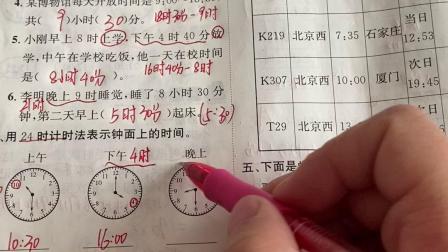 4. 某博物馆每天开放时间是9:00-18:30
共(9)小时(30)分。 18时30分-9时
5. 小刚早上8时上学,下午4时40分放
学,中午在学校吃饭,他一天在校时间
是(8小时40分)。 16时40分-8时
6. 李明晚上9时睡觉,睡了8小时30分
21时
钟,第二天早上(5时30分)起床。(5:30)
、用24时计时法表示钟面上的时间。
上午 下午4时 晚上
10:30 16:00
K219 北京西 7:35 石家庄 当日 12:53
K307 北京西 10:00 厦门 次日 19:45
T29 北京西
五、下面是